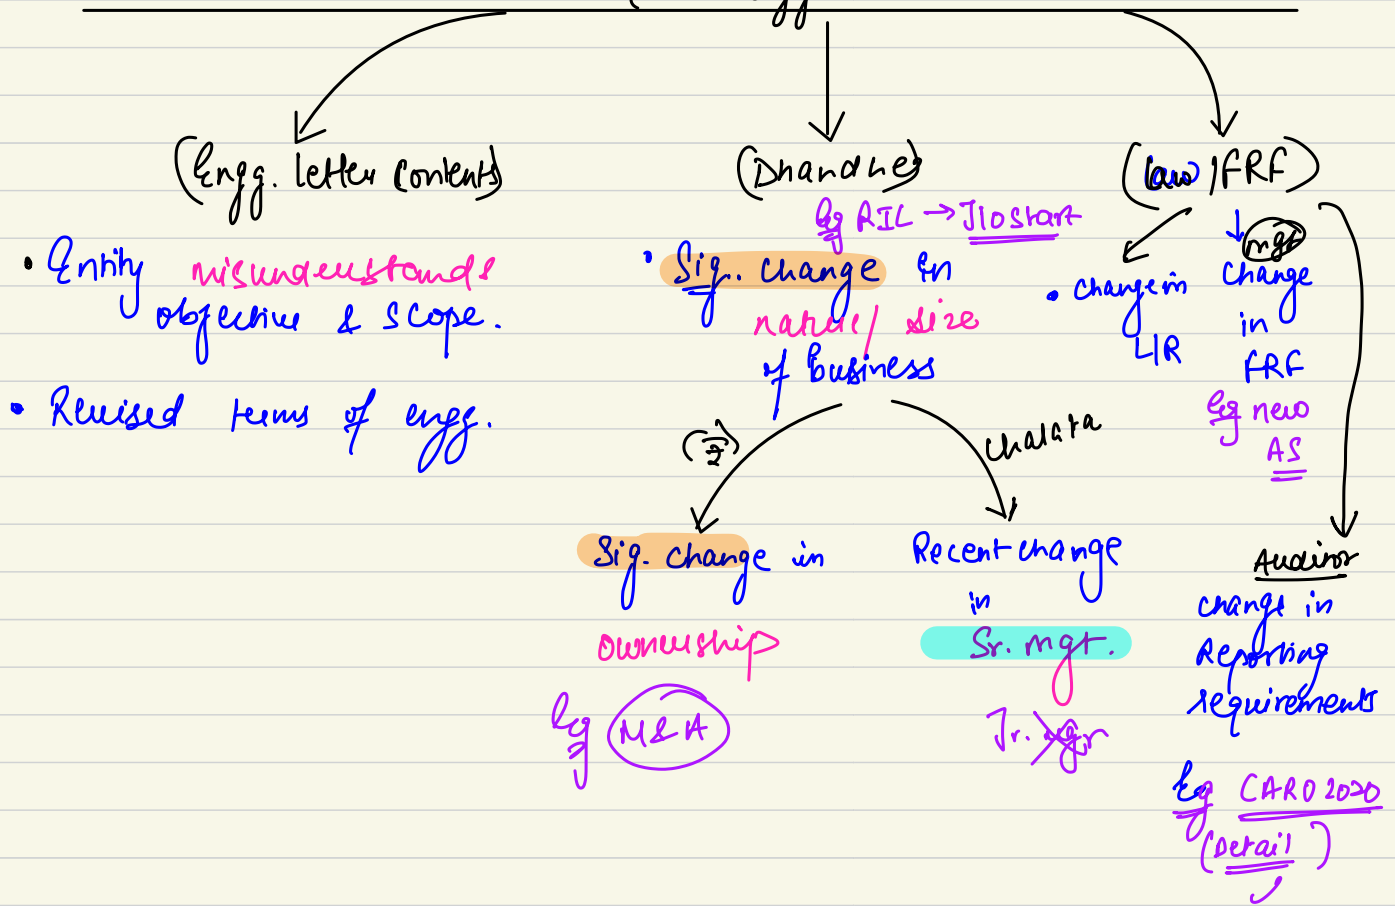 (Engg. letter Contents)
• Entity misunderstands
objective & scope.
• Revised terms of engg.
(Dhandhe)
Eg RIL → JIO start
• Sig. change in
nature/ size
of business
Sig. change in
ownership
Eg M&A
Chalata
Recent change
in
Sr. mgt.
Jr. mgr
(law / FRF)
• Change in
LIR
mgt
Change
in
FRF
Eg new
AS
Auditor
Change in
Reporting
requirements
Eg CARO 2020
(Detail)